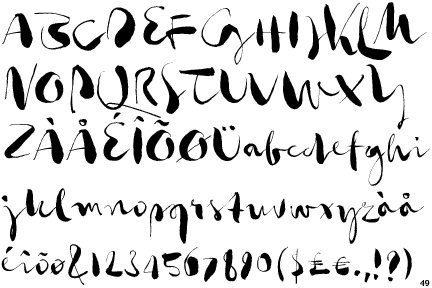 ABCDEFGHIJKLM
NOPQRSTUVWXY
ZÀÅÉÎÕØÜabcdefghi
jklmnopqrstuvwxyzàå
éîõø&1234567890($£€.,!?)
49